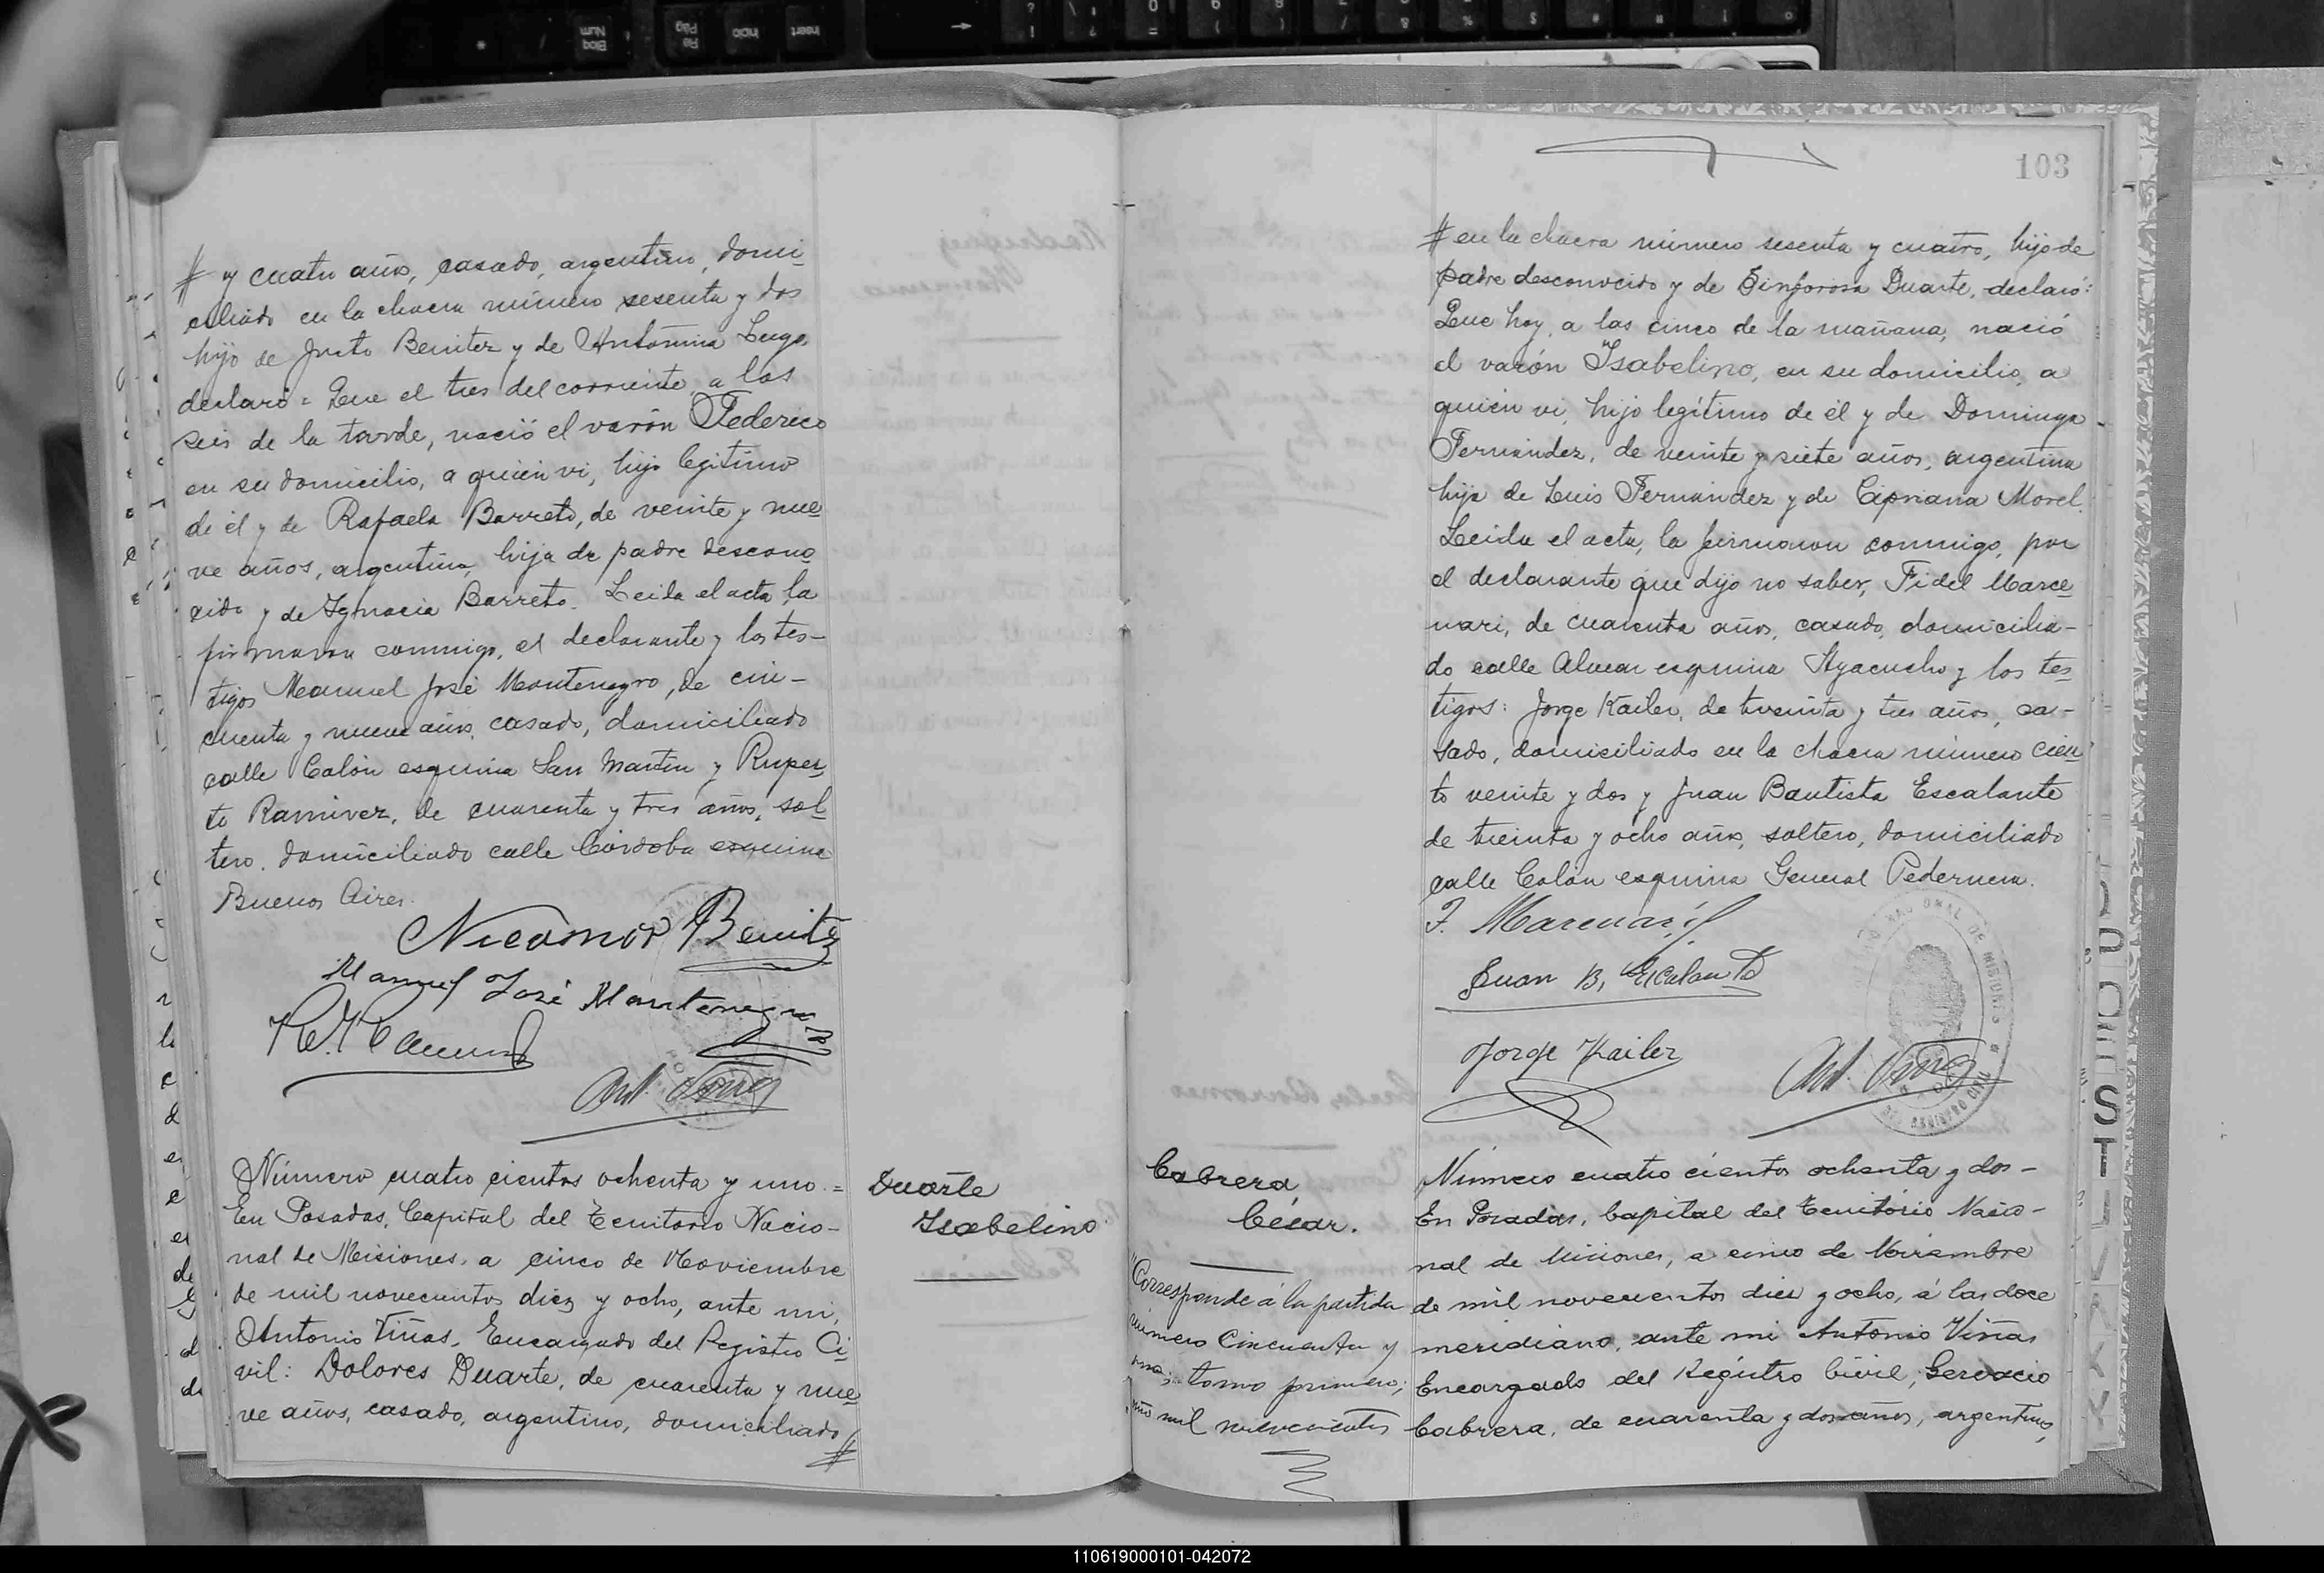 # y cuatro años, casado, argentino, domi-
ciliado en la chacra número sesenta y dos
hijo de Justo Benitez y de Antonina Lugo,
declaró = Que el tres del corriente, a las
seis de la tarde, nació el varón Federico
en su domicilio, a quien vi, hijo legítimo
de él y de Rafaela Barreto, de veinte y nue-
ve años, argentina, hija de padre descono-
cido y de Ignacia Barreto. Leida el acta, la
firmaron conmigo, el declarante y los tes-
tigos Manuel José Montenegro, de cin-
cuenta y nueve años, casado, domiciliado
calle Colón esquina San Martín y Ruper-
to Ramirez, de cuarenta y tres años, sol-
tero, domiciliado calle Córdoba esquina
Buenos Aires.
Nicomor Benitez
Manuel José Montenegro
Ant. Viñas
Número cuatro cientos ochenta y uno =
En Posadas, Capital del Territorio Nacio-
nal de Misiones, a cinco de Noviembre
de mil novecientos diez y ocho, ante mi,
Antonio Viñas, Encargado del Registro Ci-
vil: Dolores Duarte, de cuarenta y nue-
ve años, casado, argentino, domiciliado
#
Duarte
Isabelino
103
# en la chacra número sesenta y cuatro, hijo de
padre desconocido y de Sinforosa Duarte, declaró:
Que hoy, a las cinco de la mañana, nació
el varón Isabelino, en su domicilio, a
quien vi, hijo legítimo de él y de Dominga
Fernández, de veinte y siete años, argentina
hija de Luis Fernández y de Cipriana Morel.
Leida el acta, la firmaron conmigo, por
el declarante que dijo no saber, Fidel Marce-
nari, de cuarenta años, casado, domicilia-
do calle Alvear esquina Ayacucho y los tes-
tigos: Jorge Kailer, de treinta y tres años, ca-
sado, domiciliado en la chacra número cien-
to veinte y dos y Juan Bautista Escalante
de treinta y ocho años, soltero, domiciliado
calle Colón esquina General Pedernera.
F. Marcenari
Juan B. Escalante
Jorge Kailer
Ant. Viñas
NACIONAL DE MISIONES
REGISTRO CIVIL
Cabrera,
César.
"Corresponde á la partida
número Cincuenta y
una; tomo primero;
año mil novecientos
Número cuatro cientos ochenta y dos -
En Posadas, Capital del Territorio Nacio-
nal de Misiones, a cinco de Noviembre
de mil novecientos diez y ocho, á las doce
meridiano, ante mi Antonio Viñas
Encargado del Registro Civil, Gervacio
Cabrera, de cuarenta y dos años, argentino,
110619000101-042072